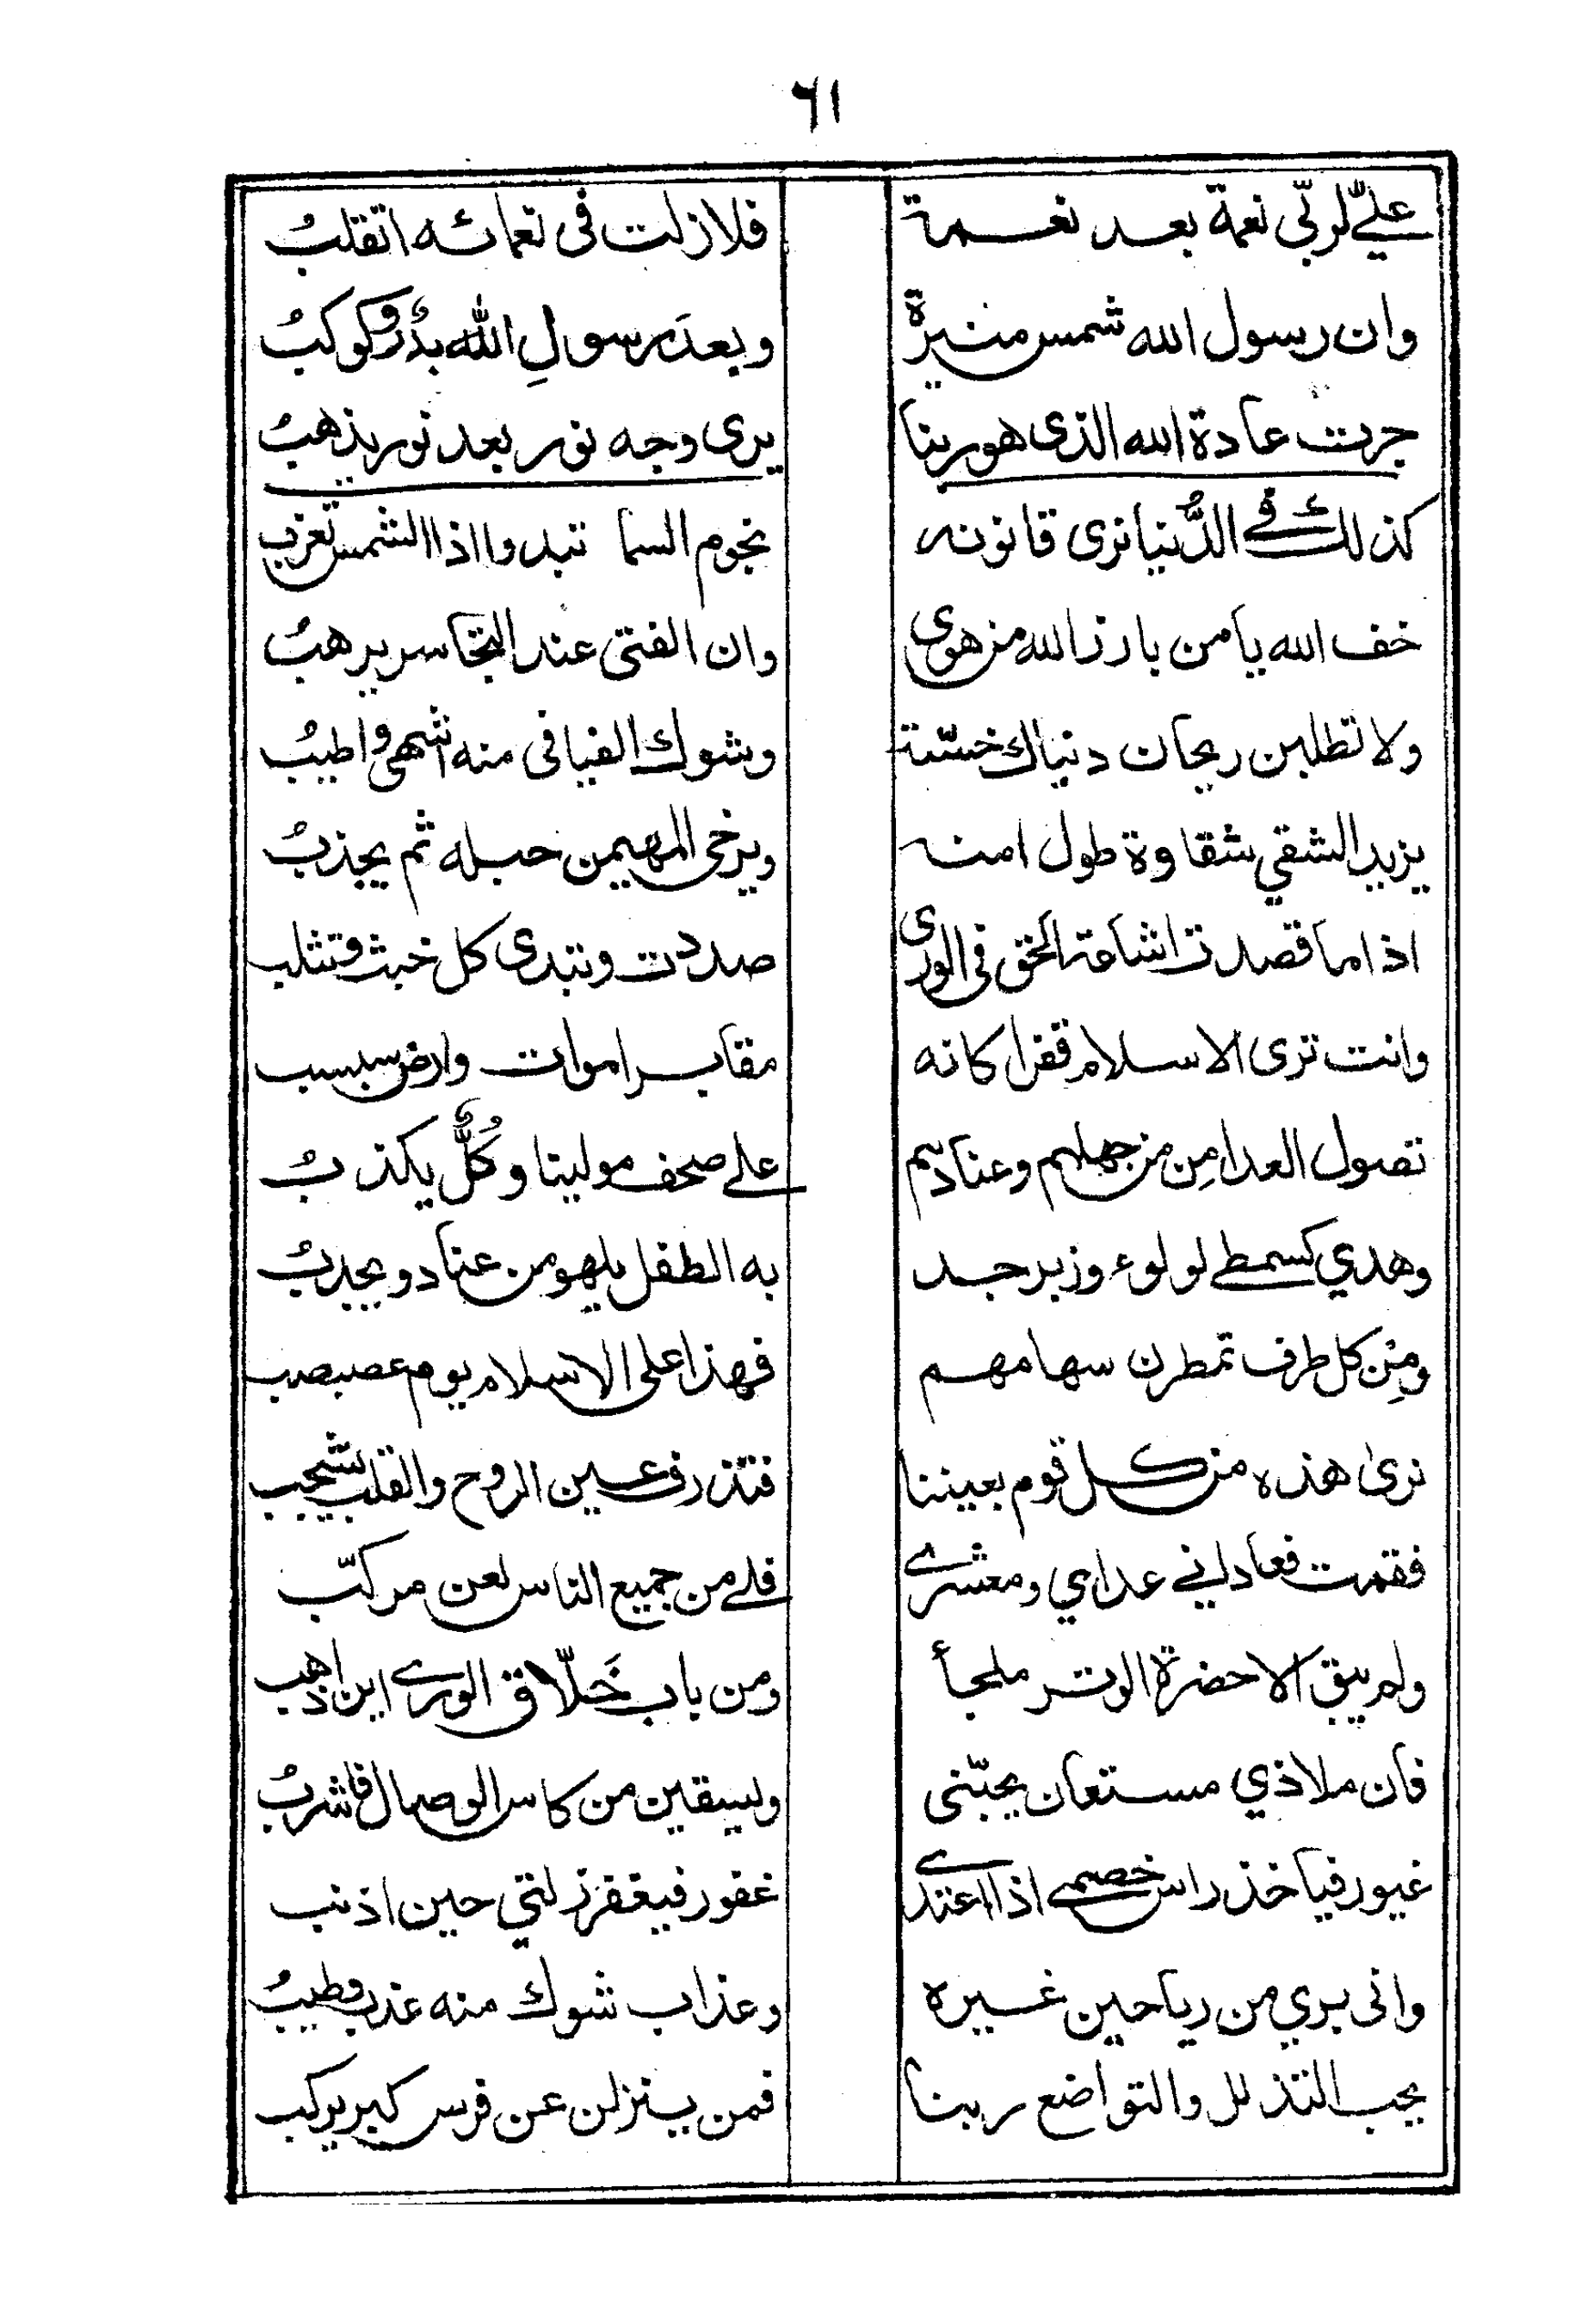 ٦١
علیّ لربّی نعمة بعد نعمة فلا زلت فی نعمائه اتقلبُ
وان رسول الله شمس منیرة وبعدَ رسولِ اللّٰه بدرٌ وکوکبُ
جرت عادة الله الذی هو ربنا یری وجه نور بعد نور یذهبُ
کذلک فی الدُّنیا نری قانونه نجوم السما تبدوا اذا الشمس تغرب
خف الله یا من بارز الله من هوی وان الفتی عند التجاسر یرهبُ
ولا تطلبن ریحان دنیاک خسّة وشوک الفیافی منه اشهی واطیبُ
یزید الشقی شقاوة طول امنه ویرخی المهیمن حبله ثم یجذبُ
اذا ما قصدت اشاعة الحق فی الوری صددت وتبدی کل خبث وتثلب
وانت تری الاسلام قفرا کانه مقابر اموات وارض سبسب
تصول العدا مِن من جهلهم وعنادهم علے صحف مولینا وکُلٌّ یکذبُ
وهدي کسمطے لولوء وزبرجد به الطفل یلهو من عناد ویجدبُ
ومِن کل طرف تمطرن سهامهم فهذا علی الاسلام یوم عصبصب
نریٰ هذه من کل قوم بعیننا فتذرف عین الروح والقلب یشجب
فقمت فعادانے عدای ومعشرے فلے من جمیع الناس لعن مرکّب
ولم یبق الا حضرة الوتر ملجأ ومن باب خَلّاق الورے این اذهب
فان ملاذي مستعان یحبّنی ولیسقین من کاس الوصال فاشربُ
غیور فیاخذ راس خصمے اذا اعتدے غفور فیغفر زلتي حین اذنب
وانی بري من ریاحین غیره وعذاب شوک منه عذب وطیبُ
یحب التذلل والتواضع ربنا فمن ینزلن عن فرس کبر یرکب